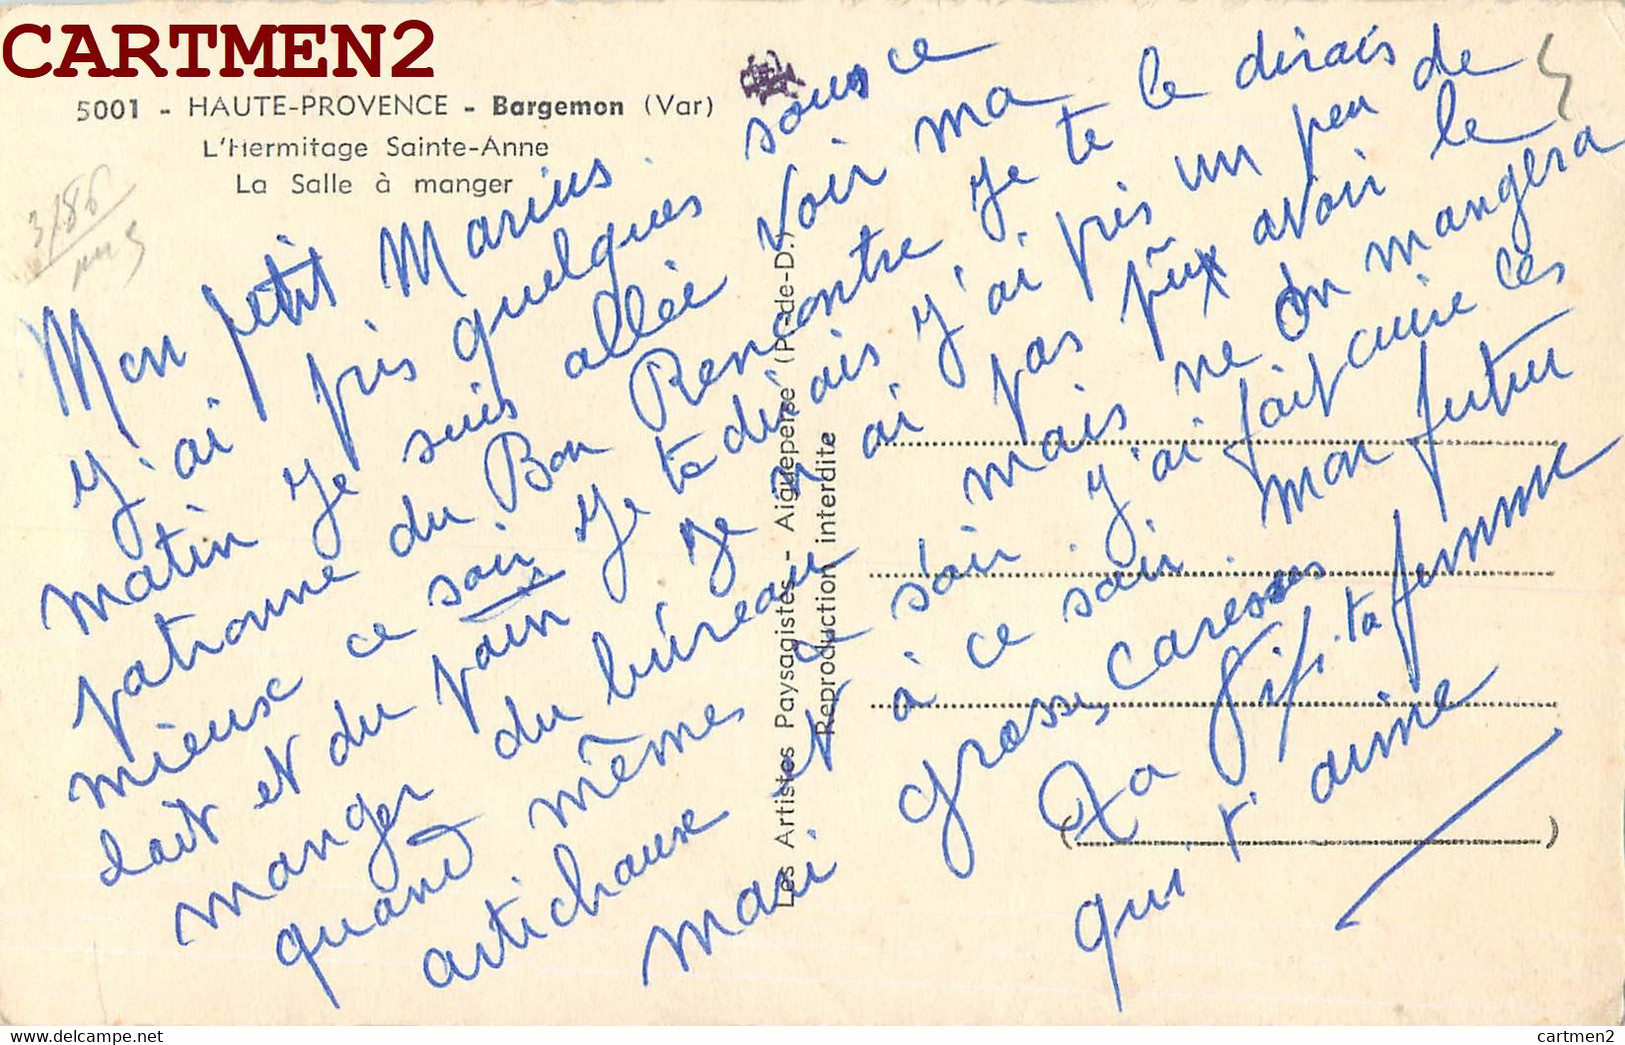 CARTMEN2
5001 - HAUTE-PROVENCE - Bargemon (Var)
L'Hermitage Sainte-Anne
La Salle à manger
3/86
Mon petit Marius.
j'ai pris quelques sous ce
matin Je suis allée voir ma
patronne du Bon Rencontre Je te le dirais
mieux ce soir Je te dirais j'ai pris un peu de
lait et du pain Je n'ai pas pûx avoir le
manger du bureau mais ne on mangera
quand mêmes ce soir. j'ai fait cuire les
artichaux et à ce soir. mon futur
mari grosses caresses
Ta Fifi. ta femme
qui t'aime
Les Artistes Paysagistes - Aigueperse (P.-de-D.)
Reproduction interdite
( )
www.delcampe.net
cartmen2